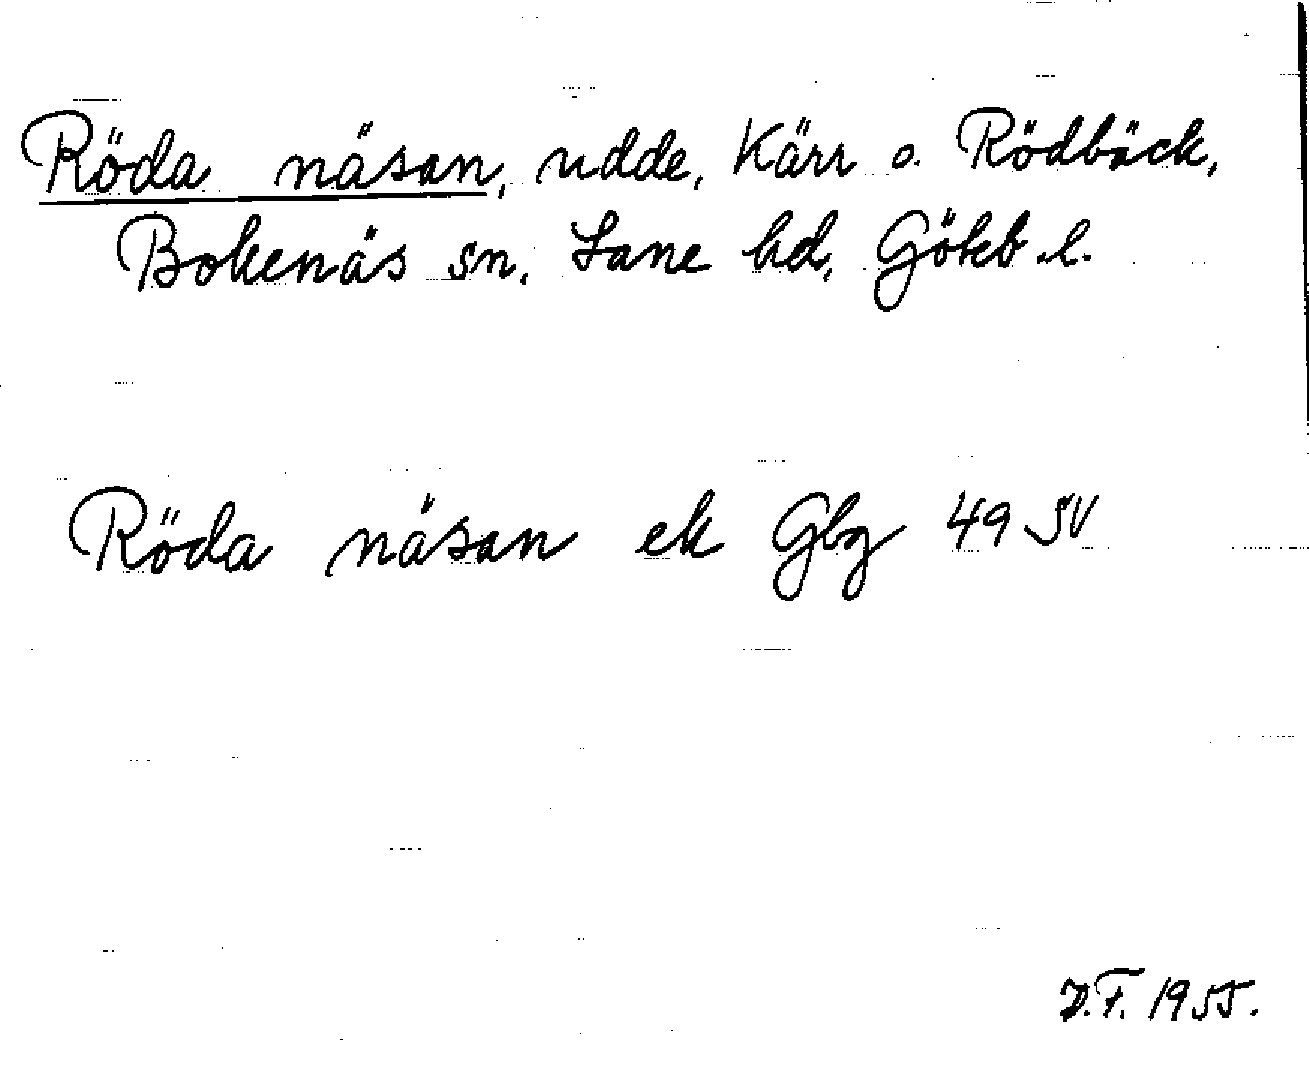 Röda näsan, udde, Kärr o. Rödbäck,
Bokenäs sn, Lane hd, Göteb. l.
Röda näsan ek Gbg 49 SV
D.F. 1955.